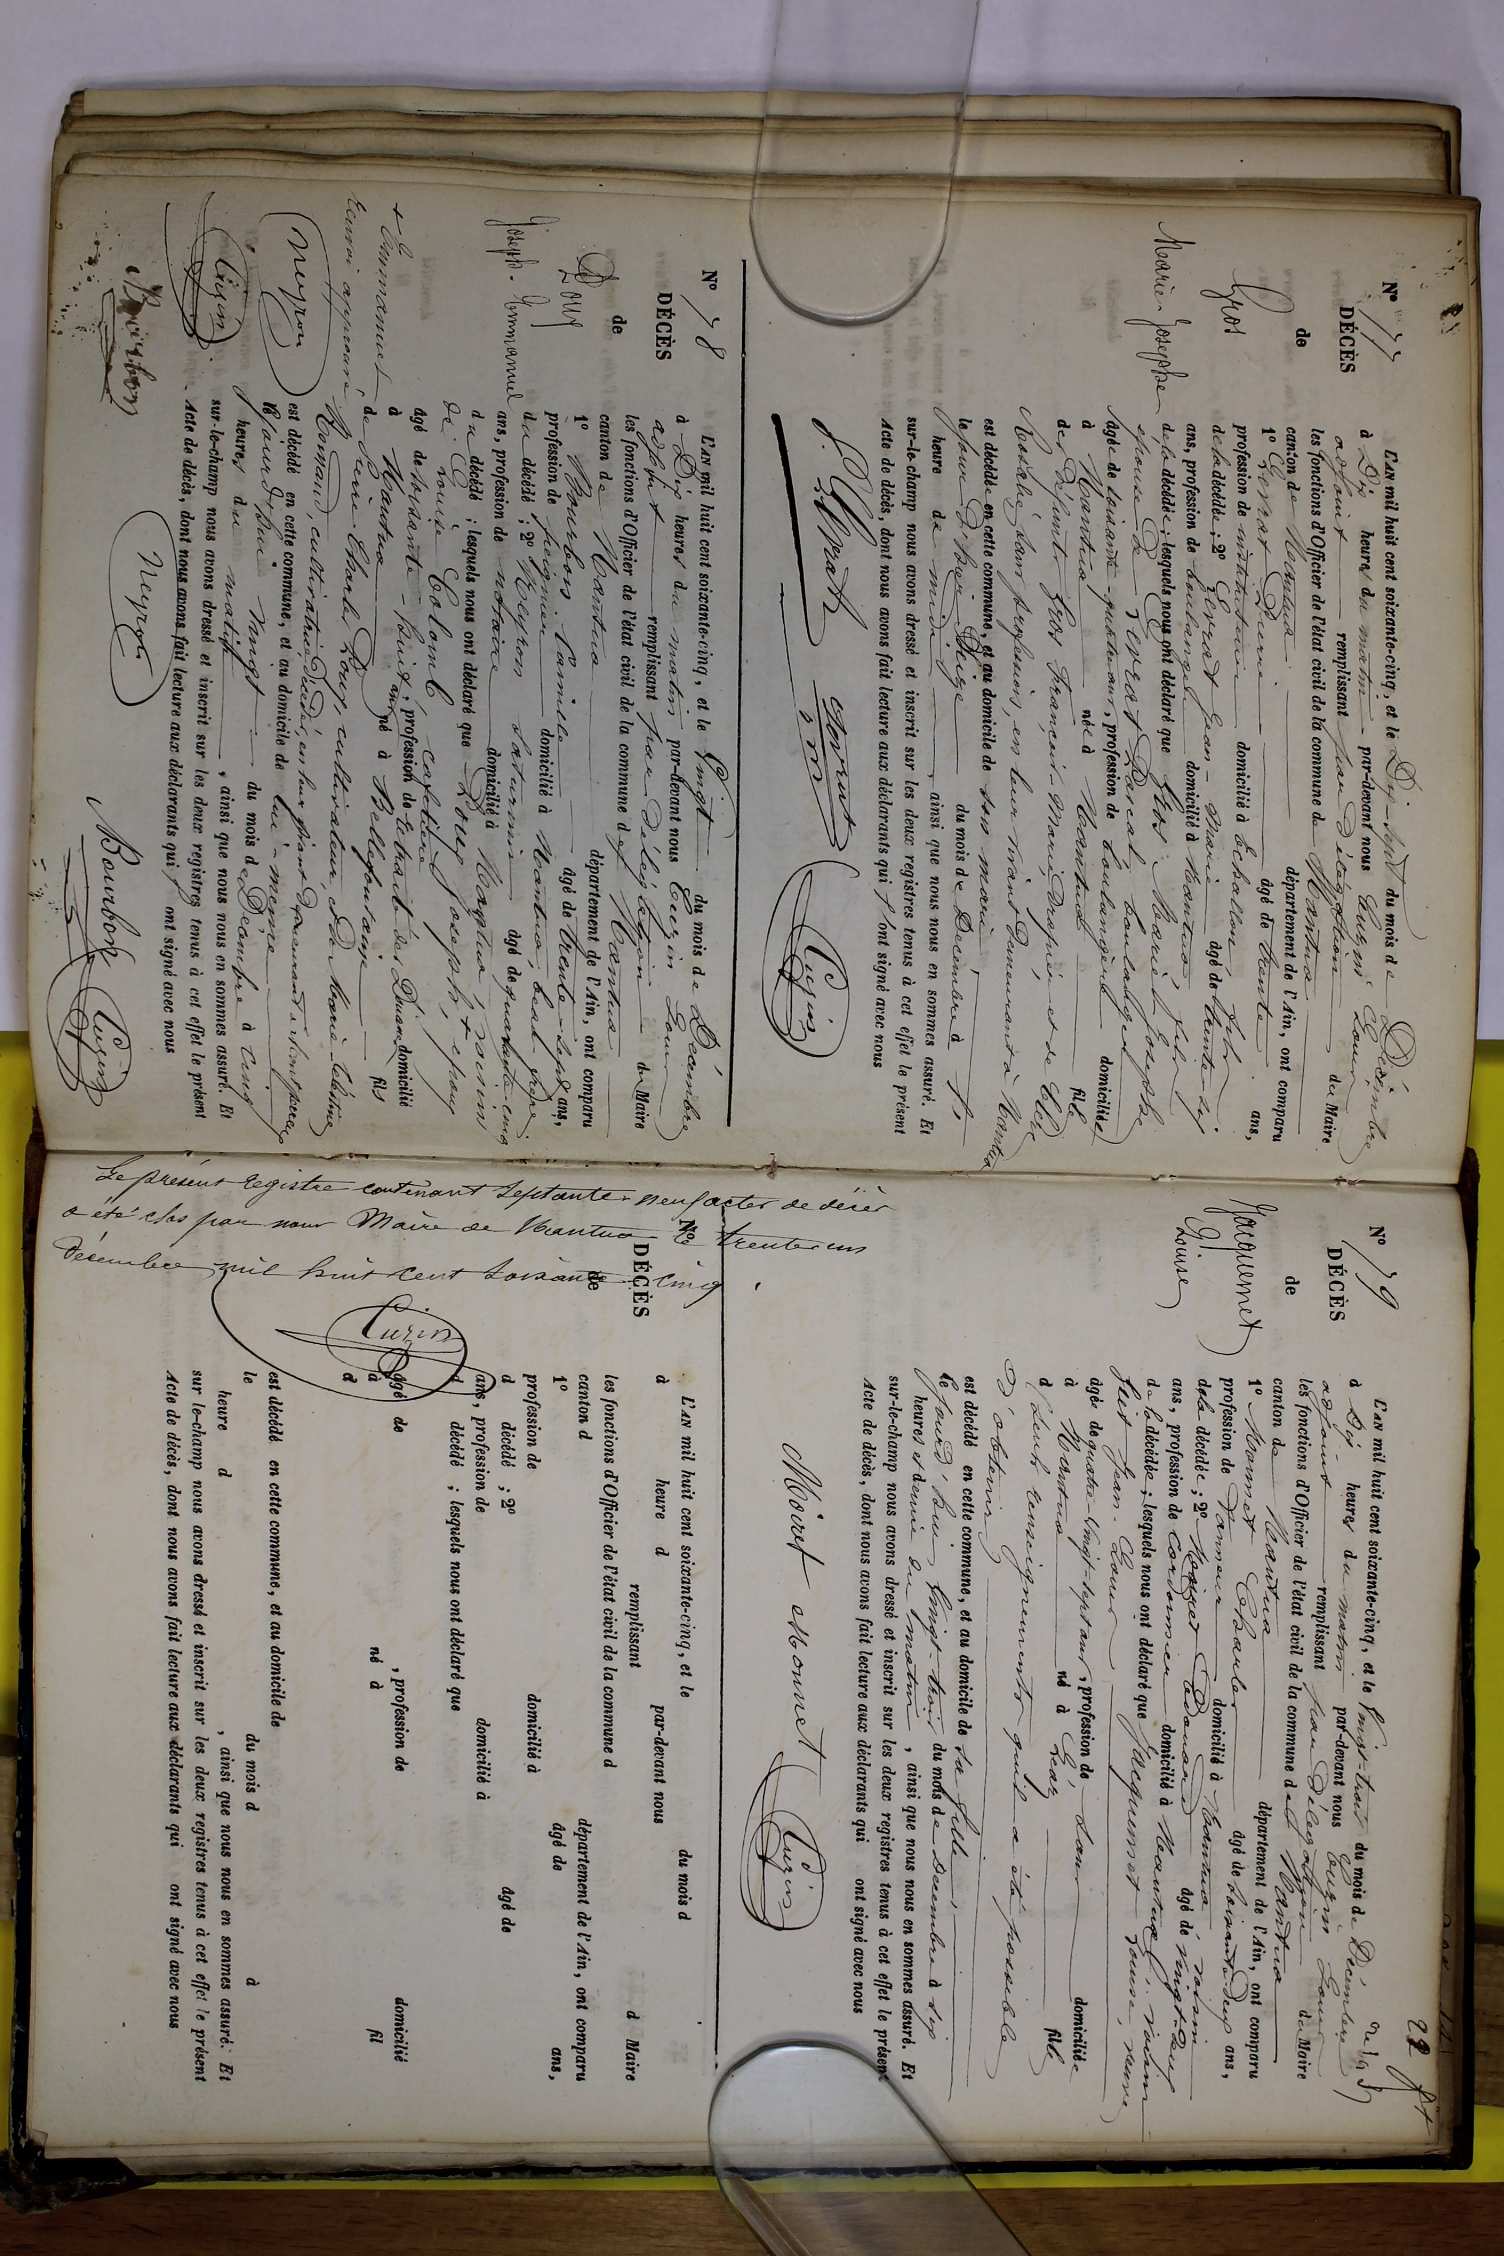 N° 77
DÉCÈS
de
Gros
Marie-Josephe
L'AN mil huit cent soixante-cinq, et le Dix-sept du mois de Décembre
à Dix heures du matin par-devant nous Cuzin Louis
adjoint remplissant par délégation du Maire
les fonctions d'Officier de l'état civil de la commune de Nantua
canton de Nantua département de l'Ain, ont comparu
1° Levrat âgé de trente ans,
profession de instituteur domicilié à Echallon, fils
de la décédée; 2° Levrat Jean-Marie âgé de trente-six
ans, profession de boulanger domicilié à Nantua fils
de la décédée; lesquels nous ont déclaré que Gros Marie Josephe
épouse de Levrat Pascal boulanger
âgée de soixante-quatre ans, profession de boulangère domiciliée
à Nantua née à Nantua fille
de défunts Gros François-Marie, drapier et de
sans profession, en leur vivant demeurant à Nantua
est décédée en cette commune, et au domicile de son mari
le jour d'hier Seize du mois de Décembre à
heure de midi, ainsi que nous nous en sommes assuré. Et
sur-le-champ nous avons dressé et inscrit sur les deux registres tenus à cet effet le présent
Acte de décès, dont nous avons fait lecture aux déclarants qui ont signé avec nous
Levrat
Levrat
Cuzin
N° 78
DÉCÈS
de
Loup
Joseph-Emmanuel
L'AN mil huit cent soixante-cinq, et le Vingt du mois de Décembre
à Dix heures du matin par-devant nous Cuzin Louis
adjoint remplissant par délégation du Maire
les fonctions d'Officier de l'état civil de la commune de Nantua
canton de Nantua département de l'Ain, ont comparu
1° Bourbon Camille âgé de trente-sept ans,
profession de peignier domicilié à Nantua, beau frère
du décédé; 2° Neyron Saturnin âgé de quarante-cinq
ans, profession de notaire domicilié à Nantua, voisin
du décédé; lesquels nous ont déclaré que Loup Joseph + époux
de Louise Colomb, cafetière
âgé de soixante-huit ans, profession de retraité des Douanes domicilié
à Nantua né à Bellefontaine fils
de Pierre Charles Loup, cultivateur, et de Marie Célestine
Romand, cultivatrice, décédés, en leur vivant demeurant à
est décédé en cette commune, et au domicile de lui-même
le jourd'hui Vingt du mois de Décembre à cinq
heures du matin, ainsi que nous nous en sommes assuré. Et
sur-le-champ nous avons dressé et inscrit sur les deux registres tenus à cet effet le présent
Acte de décès, dont nous avons fait lecture aux déclarants qui ont signé avec nous
+ Emmanuel
Renvoi approuvé
Neyron
Cuzin
Bourbon
Neyron
Bourbon
Cuzin
N° 79
DÉCÈS
de
Jacquemet
Louise
L'AN mil huit cent soixante-cinq, et le Vingt-trois du mois de Décembre
à Dix heures du matin par-devant nous Cuzin Louis
adjoint remplissant par délégation du Maire
les fonctions d'Officier de l'état civil de la commune de Nantua
canton de Nantua département de l'Ain, ont comparu
1° Monnet Charles âgé de soixante-deux ans,
profession de Tanneur domicilié à Nantua voisin
de la décédée; 2° Moiret Edouard âgé de vingt-neuf
ans, profession de Cordonnier domicilié à Nantua, voisin
de la décédée; lesquels nous ont déclaré que Jacquemet Louise, veuve
Jean-Louis
âgée de quatre-vingt-sept ans, profession de sans domiciliée
à Nantua née à Géx fille
d leurs renseignements qu'il a été possible
d'obtenir
est décédé en cette commune, et au domicile de sa fille
le jourd'hui Vingt-trois du mois de Décembre à six
heures et demie du matin, ainsi que nous nous en sommes assuré. Et
sur-le-champ nous avons dressé et inscrit sur les deux registres tenus à cet effet le présent
Acte de décès, dont nous avons fait lecture aux déclarants qui ont signé avec nous
Moiret Monnet Cuzin
N°
DÉCÈS
de
L'AN mil huit cent soixante-cinq, et le du mois d
à heure d par-devant nous
remplissant d Maire
les fonctions d'Officier de l'état civil de la commune d
canton d département de l'Ain, ont comparu
1° âgé de ans,
profession de domicilié à
d décédé; 2° âgé de
ans, profession de domicilié à
d décédé; lesquels nous ont déclaré que
âgé de, profession de domicilié
à né à fil
d
est décédé en cette commune, et au domicile de
le du mois d à
heure d, ainsi que nous nous en sommes assuré. Et
sur le-champ nous avons dressé et inscrit sur les deux registres tenus à cet effet le présent
Acte de décès, dont nous avons fait lecture aux déclarants qui ont signé avec nous
Le présent registre contenant septante-neuf actes de décès
a été clos par nous Maire de Nantua le trente un
décembre mil huit cent soixante-cinq.
Cuzin